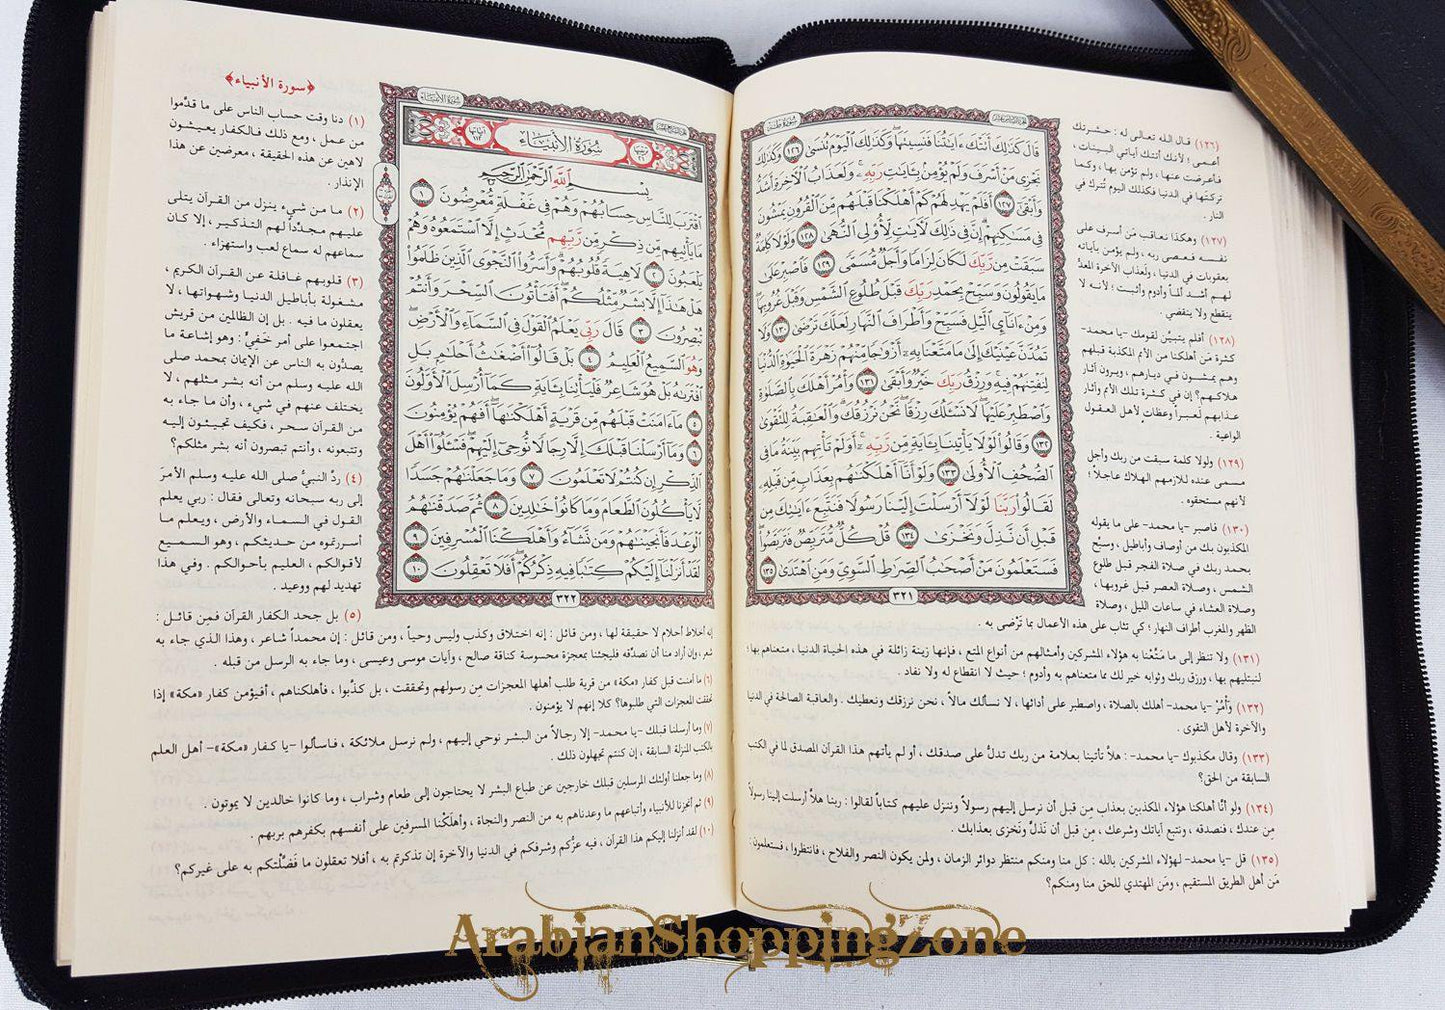 سُورَةُ طه
قَالَ كَذَٰلِكَ أَتَتْكَ ءَايَٰتُنَا فَنَسِيتَهَا ۖ وَكَذَٰلِكَ ٱلْيَوْمَ تُنسَىٰ ١٢٦ وَكَذَٰلِكَ
نَجْزِى مَنْ أَسْرَفَ وَلَمْ يُؤْمِنۢ بِـَٔايَٰتِ رَبِّهِۦ ۚ وَلَعَذَابُ ٱلْءَاخِرَةِ أَشَدُّ
وَأَبْقَىٰٓ ١٢٧ أَفَلَمْ يَهْدِ لَهُمْ كَمْ أَهْلَكْنَا قَبْلَهُم مِّنَ ٱلْقُرُونِ يَمْشُونَ
فِى مَسَٰكِنِهِمْ ۗ إِنَّ فِى ذَٰلِكَ لَءَايَٰتٍ لِّأُو۟لِى ٱلنُّهَىٰ ١٢٨ وَلَوْلَا كَلِمَةٌ
سَبَقَتْ مِن رَّبِّكَ لَكَانَ لِزَامًا وَأَجَلٌ مُّسَمًّى ١٢٩ فَٱصْبِرْ عَلَىٰ
مَا يَقُولُونَ وَسَبِّحْ بِحَمْدِ رَبِّكَ قَبْلَ طُلُوعِ ٱلشَّمْسِ وَقَبْلَ غُرُوبِهَا ۖ
وَمِنْ ءَانَآئِ ٱلَّيْلِ فَسَبِّحْ وَأَطْرَافَ ٱلنَّهَارِ لَعَلَّكَ تَرْضَىٰ ١٣٠ وَلَا
تَمُدَّنَّ عَيْنَيْكَ إِلَىٰ مَا مَتَّعْنَا بِهِۦٓ أَزْوَٰجًا مِّنْهُمْ زَهْرَةَ ٱلْحَيَوٰةِ ٱلدُّنْيَا
لِنَفْتِنَهُمْ فِيهِ ۚ وَرِزْقُ رَبِّكَ خَيْرٌ وَأَبْقَىٰ ١٣١ وَأْمُرْ أَهْلَكَ بِٱلصَّلَوٰةِ
وَٱصْطَبِرْ عَلَيْهَا ۖ لَا نَسْـَٔلُكَ رِزْقًا ۖ نَّحْنُ نَرْزُقُكَ ۗ وَٱلْعَٰقِبَةُ لِلتَّقْوَىٰ
١٣٢ وَقَالُوا۟ لَوْلَا يَأْتِينَا بِـَٔايَةٍ مِّن رَّبِّهِۦٓ ۚ أَوَلَمْ تَأْتِهِم بَيِّنَةُ مَا فِى
ٱلصُّحُفِ ٱلْأُولَىٰ ١٣٣ وَلَوْ أَنَّآ أَهْلَكْنَٰهُم بِعَذَابٍ مِّن قَبْلِهِۦ
لَقَالُوا۟ رَبَّنَا لَوْلَآ أَرْسَلْتَ إِلَيْنَا رَسُولًا فَنَتَّبِعَ ءَايَٰتِكَ مِن
قَبْلِ أَن نَّذِلَّ وَنَخْزَىٰ ١٣٤ قُلْ كُلٌّ مُّتَرَبِّصٌ فَتَرَبَّصُوا۟ ۖ
فَسَتَعْلَمُونَ مَنْ أَصْحَٰبُ ٱلصِّرَٰطِ ٱلسَّوِىِّ وَمَنِ ٱهْتَدَىٰ ١٣٥
٣٢١
(١٢٦) قال الله تعالى له : حشرتك
أعمى ، لأنك أتتك آياتي البينات ،
فأعرضت عنها ، ولم تؤمن بها ، وكما
تركتها في الدنيا فكذلك اليوم تُترك في
النار .
(١٢٧) وهكذا نعاقب مَن أسرف على
نفسه فعصى ربه ، ولم يؤمن بآياته
بعقوبات في الدنيا ، ولَعذاب الآخرة المعدُّ
لهم أشد ألماً وأدوم وأثبت ؛ لأنه لا
ينقطع ولا ينقضي .
(١٢٨) أفلم يتبيَّن لقومك -يا محمد-
كثرة مَن أهلكنا من الأمم المكذبة قبلهم
وهم يمشون في ديارهم ، ويرون آثار
هلاكهم؟ إن في كثرة تلك الأمم وآثار
عذابهم لَعبراً وعظات لأهل العقول
الواعية .
(١٢٩) ولولا كلمة سبقت من ربك وأجل
مسمى عنده للازمهم الهلاك عاجلاً ؛
لأنهم مستحقوه .
(١٣٠) فاصبر -يا محمد- على ما يقوله
المكذبون بك من أوصاف وأباطيل ، وسبِّح
بحمد ربك في صلاة الفجر قبل طلوع
الشمس ، وصلاة العصر قبل غروبها ،
وصلاة العشاء في ساعات الليل ، وصلاة
الظهر والمغرب أطراف النهار ؛ كي تثاب على هذه الأعمال بما تَرْضى به .
(١٣١) ولا تنظر إلى ما مَتَّعْنا به هؤلاء المشركين وأمثالهم من أنواع المتع ، فإنها زينة زائلة في هذه الحياة الدنيا ، متعناهم بها ؛
لنبتليهم بها ، ورزق ربك وثوابه خير لك مما متعناهم به وأدوم ؛ حيث لا انقطاع له ولا نفاد .
(١٣٢) وَأْمُرْ -يا محمد- أهلك بالصلاة ، واصطبر على أدائها ، لا نسألك مالاً ، نحن نرزقك ونعطيك . والعاقبة الصالحة في الدنيا
والآخرة لأهل التقوى .
(١٣٣) وقال مكذبوك -يا محمد- : هلاَّ تأتينا بعلامة من ربك تدلُّ على صدقك ، أو لم يأتهم هذا القرآن المصدق لما في الكتب
السابقة من الحق؟
(١٣٤) ولو أنَّا أهلكنا هؤلاء المكذبين بعذاب من قبل أن نرسل إليهم رسولاً وننزل عليهم كتاباً لقالوا : ربنا هلاَّ أرسلت إلينا رسولاً
مِن عندك ، فنصدقه ، ونتبع آياتك وشرعك ، مِن قبل أن نَذلَّ ونَخزى بعذابك .
(١٣٥) قل -يا محمد- لهؤلاء المشركين بالله : كل منا ومنكم منتظر دوائر الزمان ، ولمن يكون النصر والفلاح ، فانتظروا ، فستعلمون :
مَن أهل الطريق المستقيم ، ومَن المهتدي للحق منا ومنكم؟
﴿سورة الأنبياء﴾
سُورَةُ الأَنْبِيَاءِ
سُورَةُ الأَنْبِيَاءِ
آيَاتُهَا ١١٢
بِسْمِ ٱللَّهِ ٱلرَّحْمَٰنِ ٱلرَّحِيمِ
ٱقْتَرَبَ لِلنَّاسِ حِسَابُهُمْ وَهُمْ فِى غَفْلَةٍ مُّعْرِضُونَ ١
مَا يَأْتِيهِم مِّن ذِكْرٍ مِّن رَّبِّهِم مُّحْدَثٍ إِلَّا ٱسْتَمَعُوهُ وَهُمْ
يَلْعَبُونَ ٢ لَاهِيَةً قُلُوبُهُمْ ۗ وَأَسَرُّوا۟ ٱلنَّجْوَى ٱلَّذِينَ ظَلَمُوا۟
هَلْ هَٰذَآ إِلَّا بَشَرٌ مِّثْلُكُمْ ۖ أَفَتَأْتُونَ ٱلسِّحْرَ وَأَنتُمْ
تُبْصِرُونَ ٣ قَالَ رَبِّى يَعْلَمُ ٱلْقَوْلَ فِى ٱلسَّمَآءِ وَٱلْأَرْضِ ۖ
وَهُوَ ٱلسَّمِيعُ ٱلْعَلِيمُ ٤ بَلْ قَالُوٓا۟ أَضْغَٰثُ أَحْلَٰمٍۭ بَلِ
ٱفْتَرَىٰهُ بَلْ هُوَ شَاعِرٌ فَلْيَأْتِنَا بِـَٔايَةٍ كَمَآ أُرْسِلَ ٱلْأَوَّلُونَ
٥ مَآ ءَامَنَتْ قَبْلَهُم مِّن قَرْيَةٍ أَهْلَكْنَٰهَآ ۖ أَفَهُمْ يُؤْمِنُونَ
٦ وَمَآ أَرْسَلْنَا قَبْلَكَ إِلَّا رِجَالًا نُّوحِىٓ إِلَيْهِمْ ۖ فَسْـَٔلُوٓا۟ أَهْلَ
ٱلذِّكْرِ إِن كُنتُمْ لَا تَعْلَمُونَ ٧ وَمَا جَعَلْنَٰهُمْ جَسَدًا
لَّا يَأْكُلُونَ ٱلطَّعَامَ وَمَا كَانُوا۟ خَٰلِدِينَ ٨ ثُمَّ صَدَقْنَٰهُمُ
ٱلْوَعْدَ فَأَنجَيْنَٰهُمْ وَمَن نَّشَآءُ وَأَهْلَكْنَا ٱلْمُسْرِفِينَ ٩
لَقَدْ أَنزَلْنَآ إِلَيْكُمْ كِتَٰبًا فِيهِ ذِكْرُكُمْ ۖ أَفَلَا تَعْقِلُونَ ١٠
٣٢٢
(١) دنا وقت حساب الناس على ما قدَّموا
من عمل ، ومع ذلك فالكفار يعيشون
لاهين عن هذه الحقيقة ، معرضين عن هذا
الإنذار .
(٢) ما من شيء ينزل من القرآن يتلى
عليهم مجدَّداً لهم التذكير ، إلا كان
سماعهم له سماع لعب واستهزاء .
(٣) قلوبهم غافلة عن القرآن الكريم ،
مشغولة بأباطيل الدنيا وشهواتها ، لا
يعقلون ما فيه . بل إن الظالمين من قريش
اجتمعوا على أمر خفيٍّ : وهو إشاعة ما
يصدُّون به الناس عن الإيمان بمحمد صلى
الله عليه وسلم من أنه بشر مثلهم ، لا
يختلف عنهم في شيء ، وأن ما جاء به
من القرآن سحر ، فكيف تجيئون إليه
وتتبعونه ، وأنتم تبصرون أنه بشر مثلكم؟
(٤) ردَّ النبيُّ صلى الله عليه وسلم الأمرَ
إلى ربه سبحانه وتعالى فقال : ربي يعلم
القول في السماء والأرض ، ويعلم ما
أسررتموه من حديثكم ، وهو السميع
لأقوالكم ، العليم بأحوالكم . وفي هذا
تهديد لهم ووعيد .
(٥) بل جحد الكفار القرآن فمِن قائل :
إنه أخلاط أحلام لا حقيقة لها ، ومن قائل : إنه اختلاق وكذب وليس وحياً ، ومن قائل : إن محمداً شاعر ، وهذا الذي جاء به
شعر ، وإن أراد منا أن نصدِّقه فليجئنا بمعجزة محسوسة كناقة صالح ، وآيات موسى وعيسى ، وما جاء به الرسل من قبله .
(٦) ما آمنت قبل كفار «مكة» من قرية طلب أهلها المعجزات مِن رسولهم وتحققت ، بل كذَّبوا ، فأهلكناهم ، أفيؤمن كفار «مكة» إذا
تحققت المعجزات التي طلبوها؟ كلا إنهم لا يؤمنون .
(٧) وما أرسلنا قبلك -يا محمد- إلا رجالاً من البشر نوحي إليهم ، ولم نرسل ملائكة ، فاسألوا -يا كفار «مكة»- أهل العلم
بالكتب المنزلة السابقة ، إن كنتم تجهلون ذلك .
(٨) وما جعلنا أولئك المرسلين قبلك خارجين عن طباع البشر لا يحتاجون إلى طعام وشراب ، وما كانوا خالدين لا يموتون .
(٩) ثم أنجزنا للأنبياء وأتباعهم ما وعدناهم به من النصر والنجاة ، وأهلَكْنا المسرفين على أنفسهم بكفرهم بربهم .
(١٠) لقد أنزلنا إليكم هذا القرآن ، فيه عزُّكم وشرفكم في الدنيا والآخرة إن تذكرتم به ، أفلا تعقلون ما فَضَّلْتكم به على غيركم؟
ArabianShoppingZone